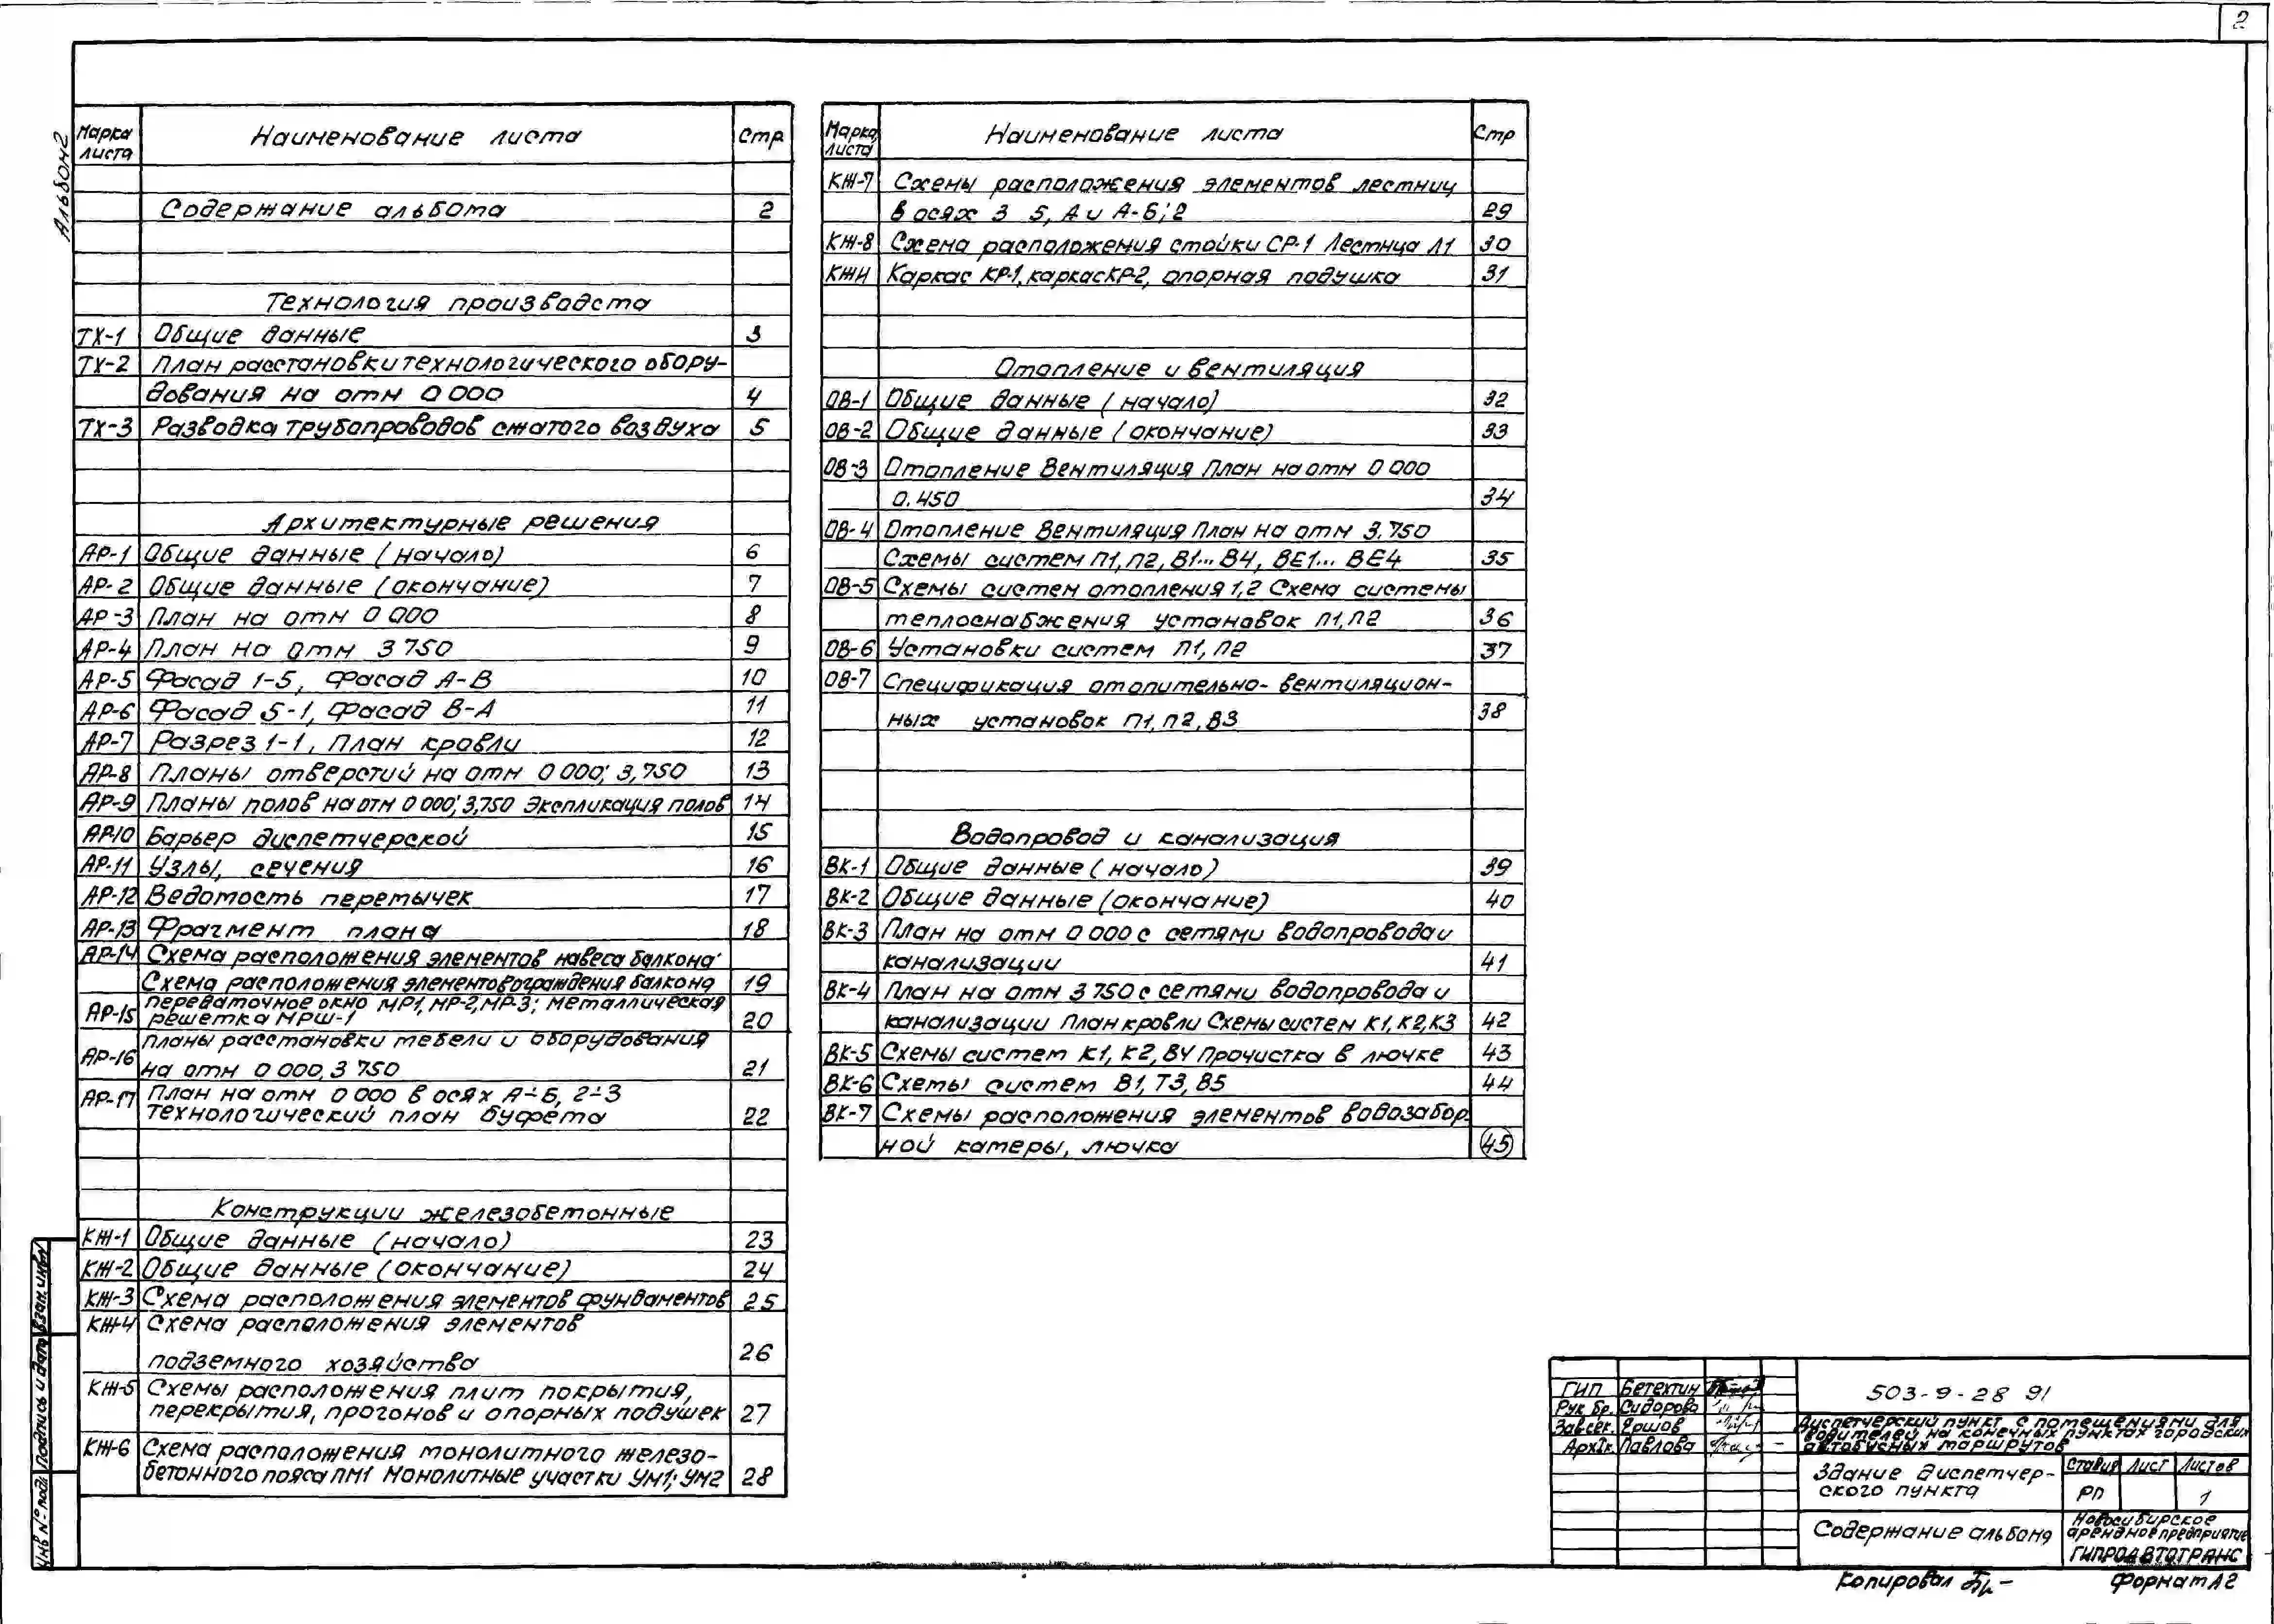 2
Альбом 2
Марка листа Наименование листа Стр
Содержание альбома 2
Технология производста
ТХ-1 Общие данные 3
ТХ-2 План расстановки технологического обору-
дования на отм 0 000 4
ТХ-3 Разводка трубопроводов сжатого воздуха 5
Архитектурные решения
АР-1 Общие данные (начало) 6
АР-2 Общие данные (окончание) 7
АР-3 План на отм 0 000 8
АР-4 План на отм 3 750 9
АР-5 Фасад 1-5, Фасад А-В 10
АР-6 Фасад 5-1, Фасад В-А 11
АР-7 Разрез 1-1, План кровли 12
АР-8 Планы отверстий на отм 0 000; 3,750 13
АР-9 Планы полов на отм 0 000; 3,750 Экспликация полов 14
АР-10 Барьер диспетчерской 15
АР-11 Узлы, сечения 16
АР-12 Ведомость перемычек 17
АР-13 Фрагмент плана 18
АР-14 Схема расположения элементов навеса балкона;
Схема расположения элементов ограждения балкона 19
АР-15 Передаточное окно МР1, МР-2, МР-3; Металлическая
решетка МРШ-1 20
АР-16 Планы расстановки мебели и оборудования
на отм 0 000, 3 750 21
АР-17 План на отм 0 000 в осях А÷Б, 2÷3
Технологический план буфета 22
Конструкции железобетонные
КЖ-1 Общие данные (начало) 23
КЖ-2 Общие данные (окончание) 24
КЖ-3 Схема расположения элементов фундаментов 25
КЖ-4 Схема расположения элементов
подземного хозяйства 26
КЖ-5 Схемы расположения плит покрытия,
перекрытия, прогонов и опорных подушек 27
КЖ-6 Схема расположения монолитного железо-
бетонного пояса ПМ1 Монолитные участки УМ1; УМ2 28
Марка листа Наименование листа Стр
КЖ-7 Схемы расположения элементов лестниц
в осях 3 5, А и А-Б; 2 29
КЖ-8 Схема расположения стойки СР-1 Лестнца Л1 30
КЖИ Каркас КР-1, каркас КР-2, опорная подушка 31
Отопление и вентиляция
ОВ-1 Общие данные (начало) 32
ОВ-2 Общие данные (окончание) 33
ОВ-3 Отопление Вентиляция План на отм 0 000
0.450 34
ОВ-4 Отопление Вентиляция План на отм 3.750
Схемы систем П1, П2, В1... В4, ВЕ1... ВЕ4 35
ОВ-5 Схемы систем отопления 1,2 Схема системы
теплоснабжения установок П1, П2 36
ОВ-6 Установки систем П1, П2 37
ОВ-7 Спецификация отопительно-вентиляцион-
ных установок П1, П2, В3 38
Водопровод и канализация
ВК-1 Общие данные (начало) 39
ВК-2 Общие данные (окончание) 40
ВК-3 План на отм 0 000 с сетями водопровода и
канализации 41
ВК-4 План на отм 3 750 с сетями водопровода и
канализации План кровли Схемы систем К1, К2, К3 42
ВК-5 Схемы систем К1, К2, В4 Прочистка в лючке 43
ВК-6 Схемы систем В1, Т3, В5 44
ВК-7 Схемы расположения элементов водозабор-
ной камеры, лючка 45
Инв № подл Подпись и дата Взам. инв №
ГИП Бетехтин
Рук бр. Сидорова
Зав сек. Ершов
Арх Iк. Павлова
503-9-28 91
Диспетчерский пункт с помещениями для
водителей на конечных пунктах городских
автобусных маршрутов
Здание диспетчер-
ского пункта
Стадия Лист Листов
РП 1
Содержание альбома
Новосибирское
арендное предприятие
ГИПРОАВТОТРАНС
Копировал
Формат А2